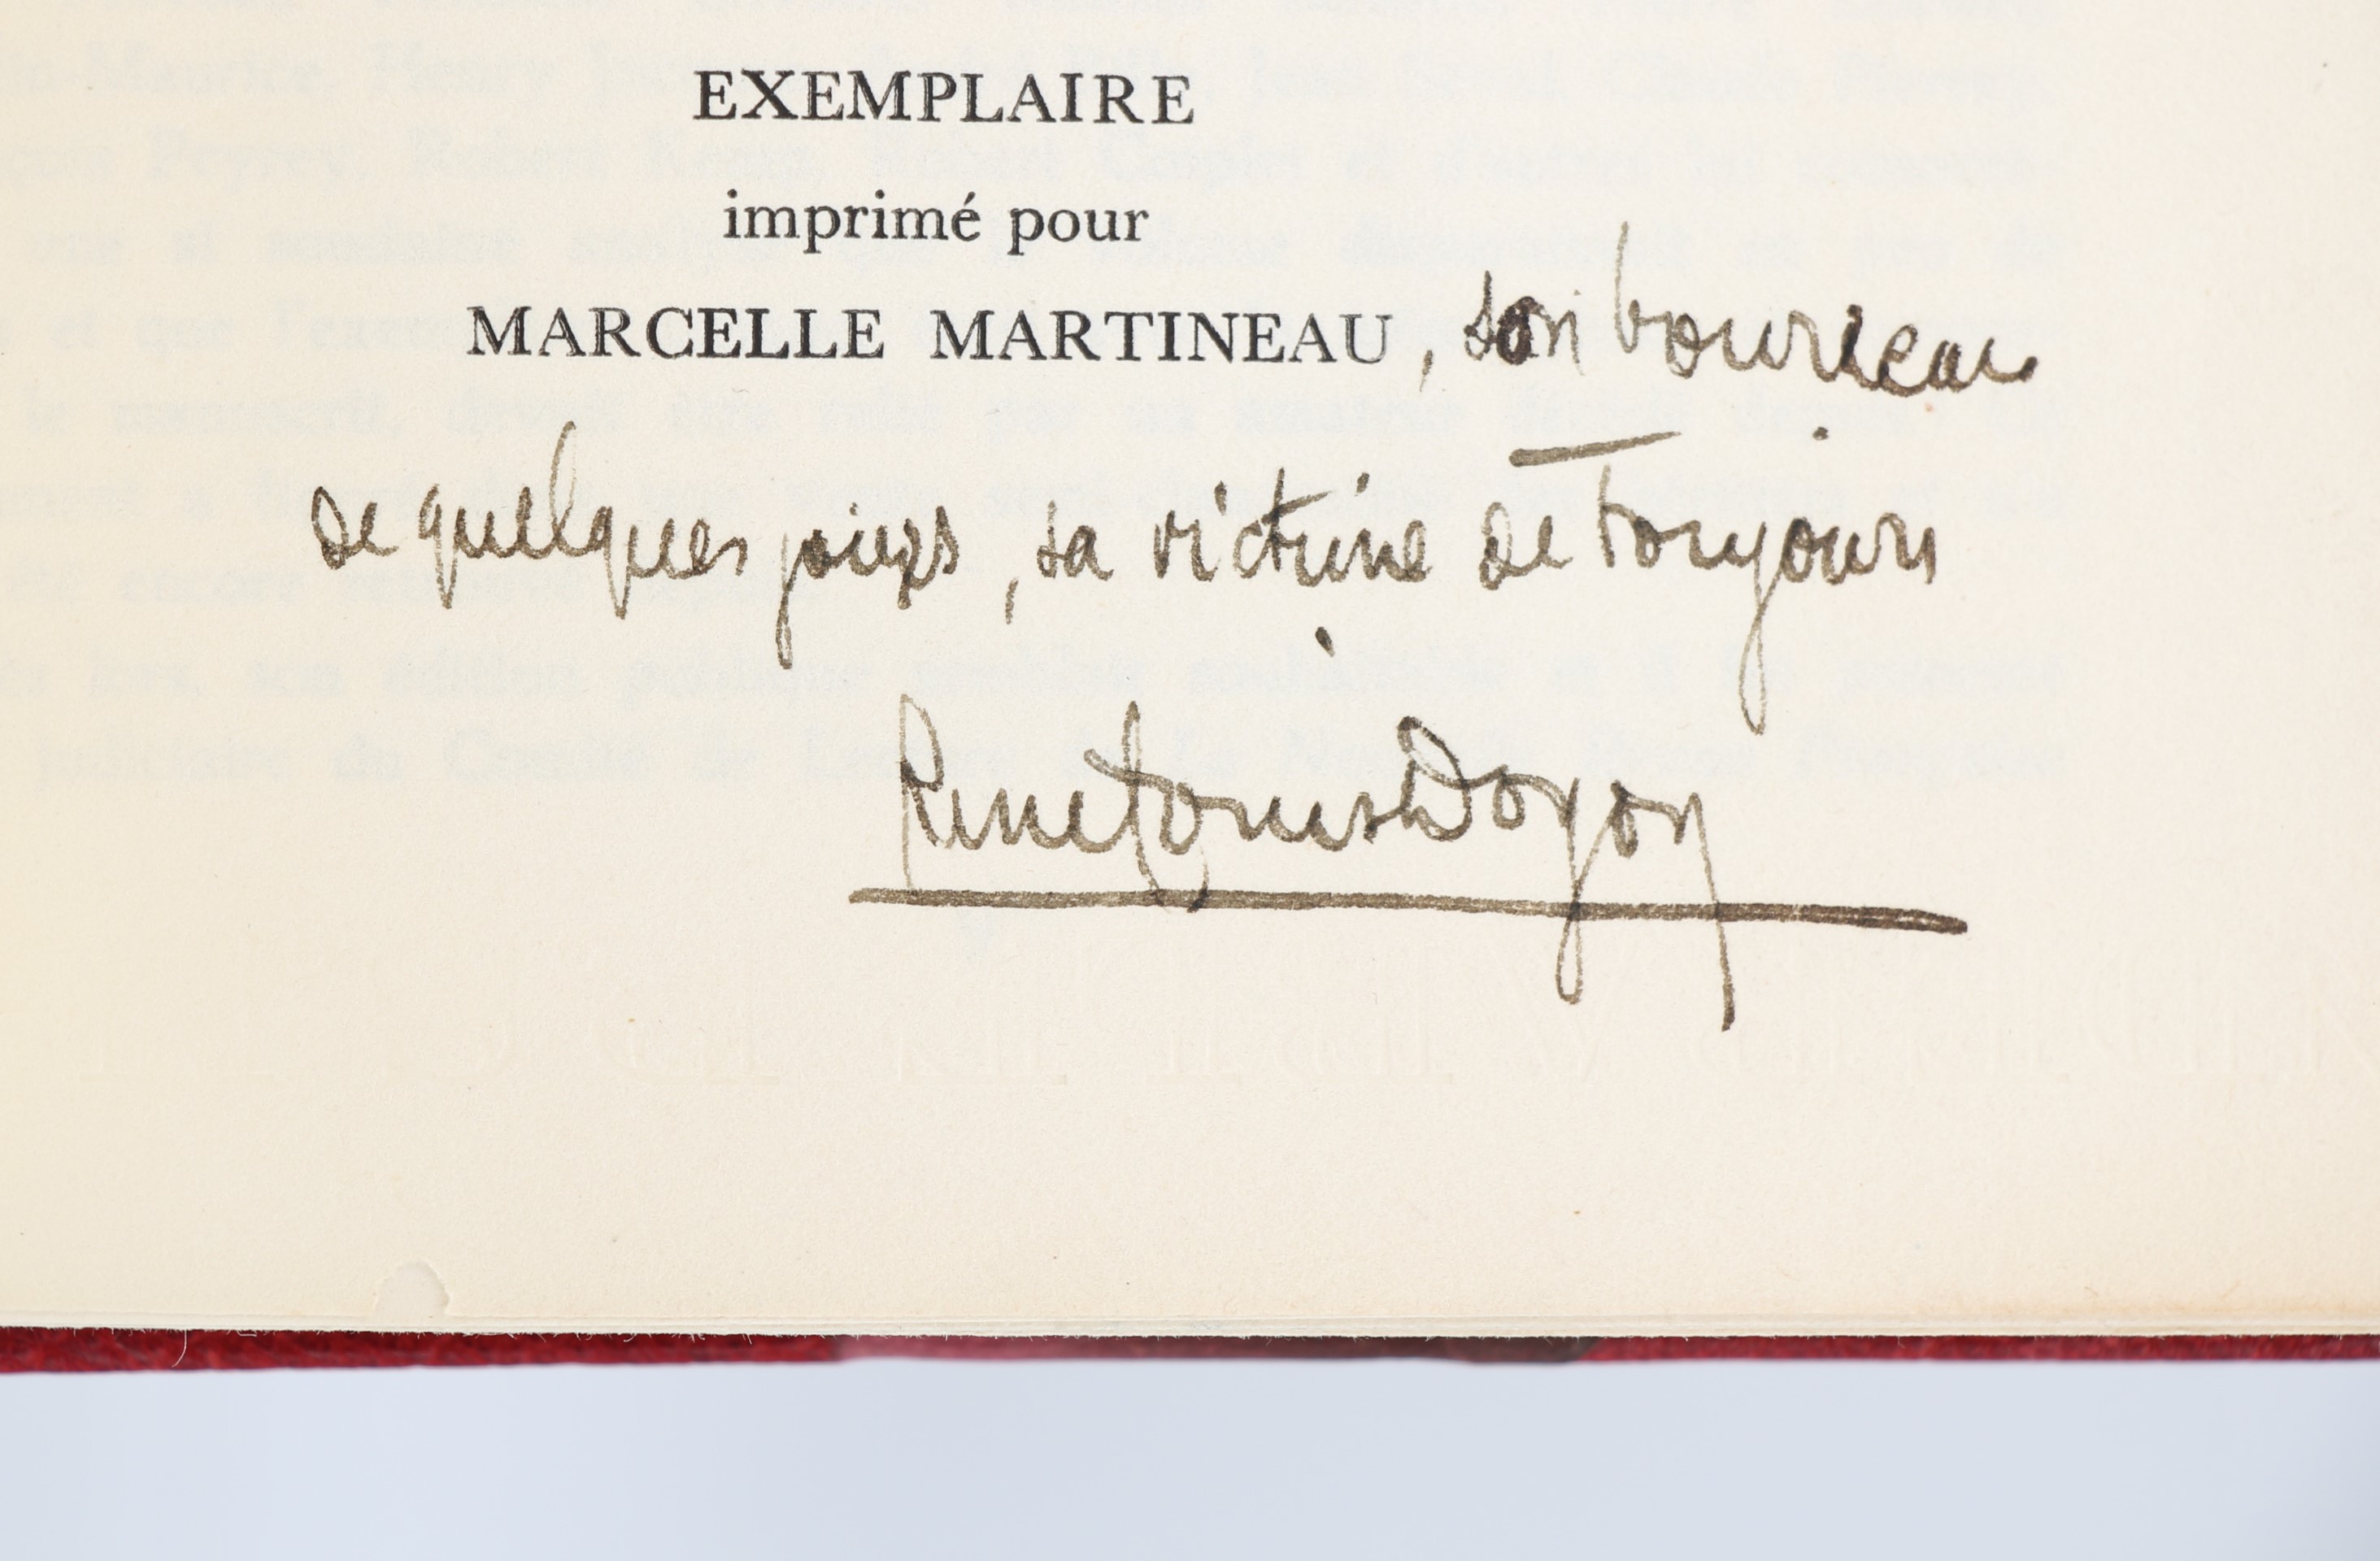 EXEMPLAIRE
imprimé pour
MARCELLE MARTINEAU, son bourreau
de quelques jours, sa victime de toujours
René Louis Doyon